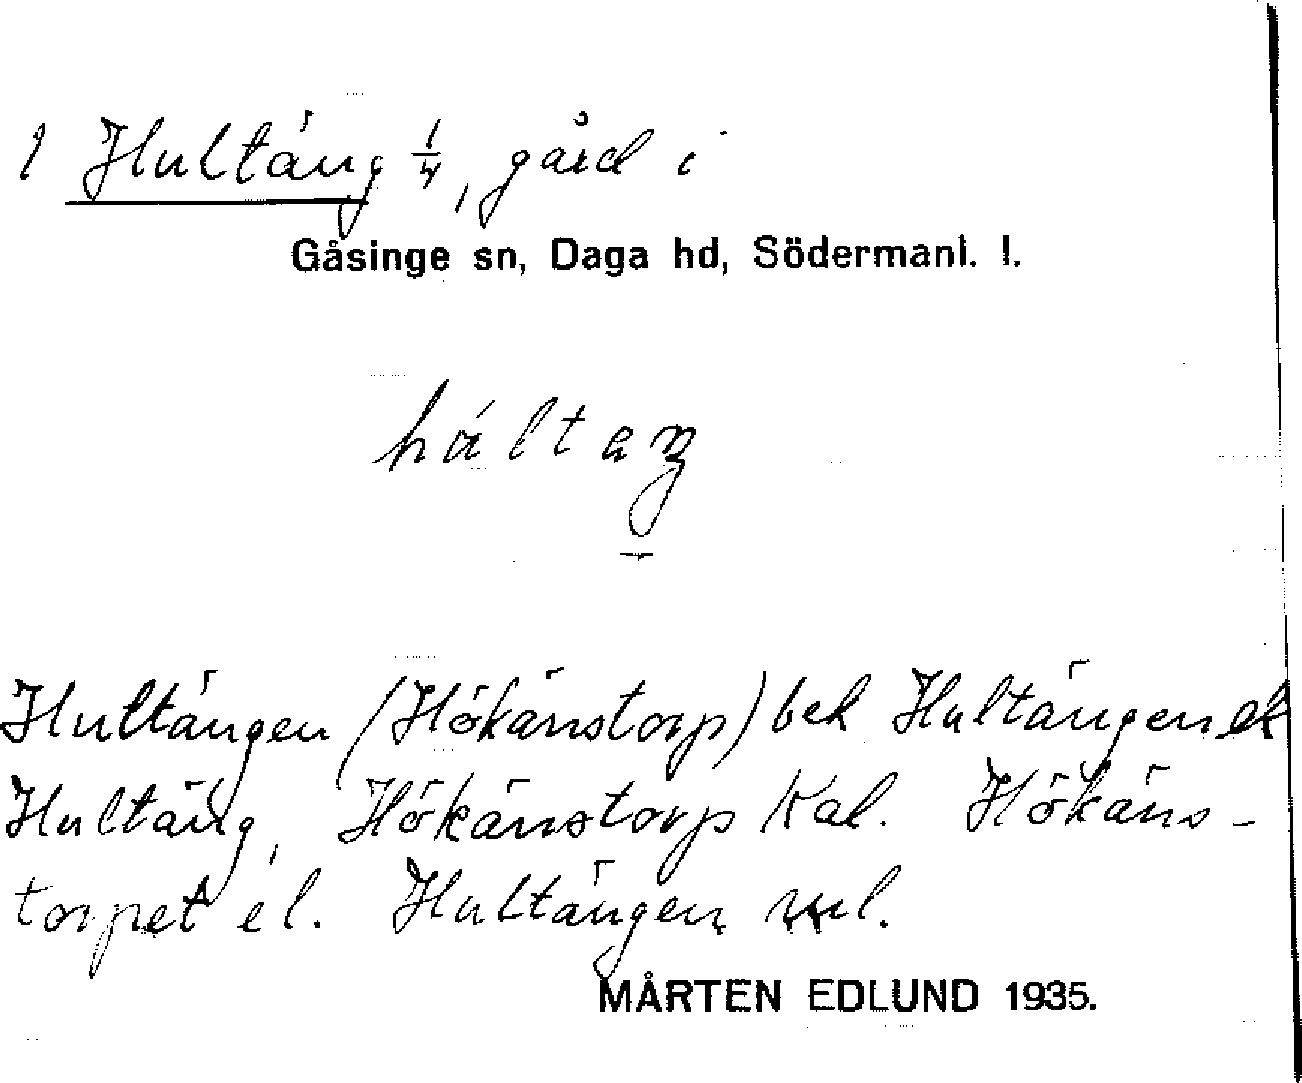 1 Hultäng 1/4, gård i
Gåsinge sn, Daga hd, Södermanl. l.
hál t a
Hultängen (Hökänstorp) bek Hultängen ek
Hultäng, Hökänstorp Kal. Hökäns-
torpet el. Hultängen
MÅRTEN EDLUND 1935.